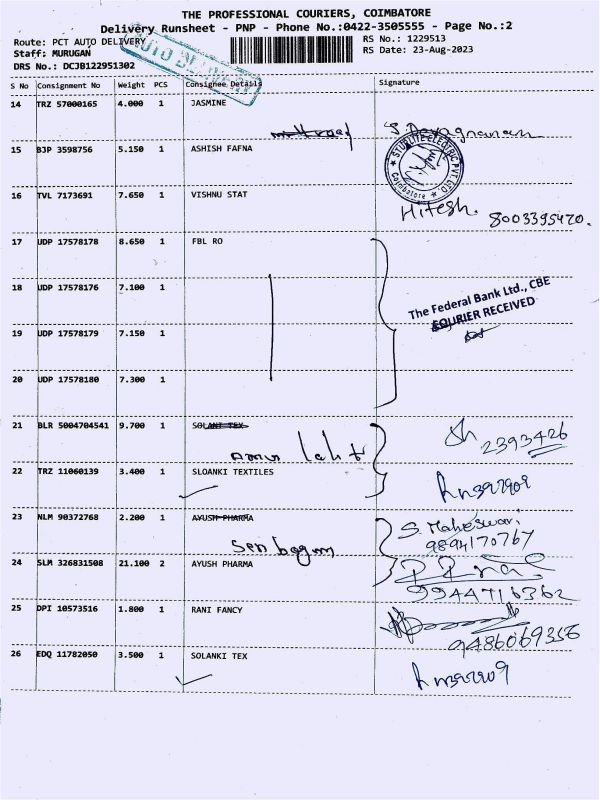 THE PROFESSIONAL COURIERS, COIMBATORE
Delivery Runsheet - PNP - Phone No.:0422-3505555 - Page No.:2
Route: PCT AUTO DELIVERY RS No.: 1229513
Staff: MURUGAN RS Date: 23-Aug-2023
DRS No.: DCJB122951302
AUTO DELIVERY
S No Consignment No Weight PCS Consignee Details Signature
14 TRZ 57000165 4.000 1 JASMINE
15 BJP 3598756 5.150 1 ASHISH FAFNA
STURLITE ELECTRIC PVT LTD
Coimbatore
16 TVL 7173691 7.650 1 VISHNU STAT Hitesh. 8003395420.
17 UDP 17578178 8.650 1 FBL RO
18 UDP 17578176 7.100 1
The Federal Bank Ltd., CBE
COURIER RECEIVED
19 UDP 17578179 7.150 1
20 UDP 17578180 7.300 1
21 BLR 5004704541 9.700 1 SOLANI TEX
2393426
22 TRZ 11060139 3.400 1 SLOANKI TEXTILES
23 NLM 90372768 2.200 1 AYUSH PHARMA S. Maheswari
9894170767
24 SLM 326831508 21.100 2 AYUSH PHARMA
9944716362
25 DPI 10573516 1.800 1 RANI FANCY
9486069356
26 EDQ 11782050 3.500 1 SOLANKI TEX